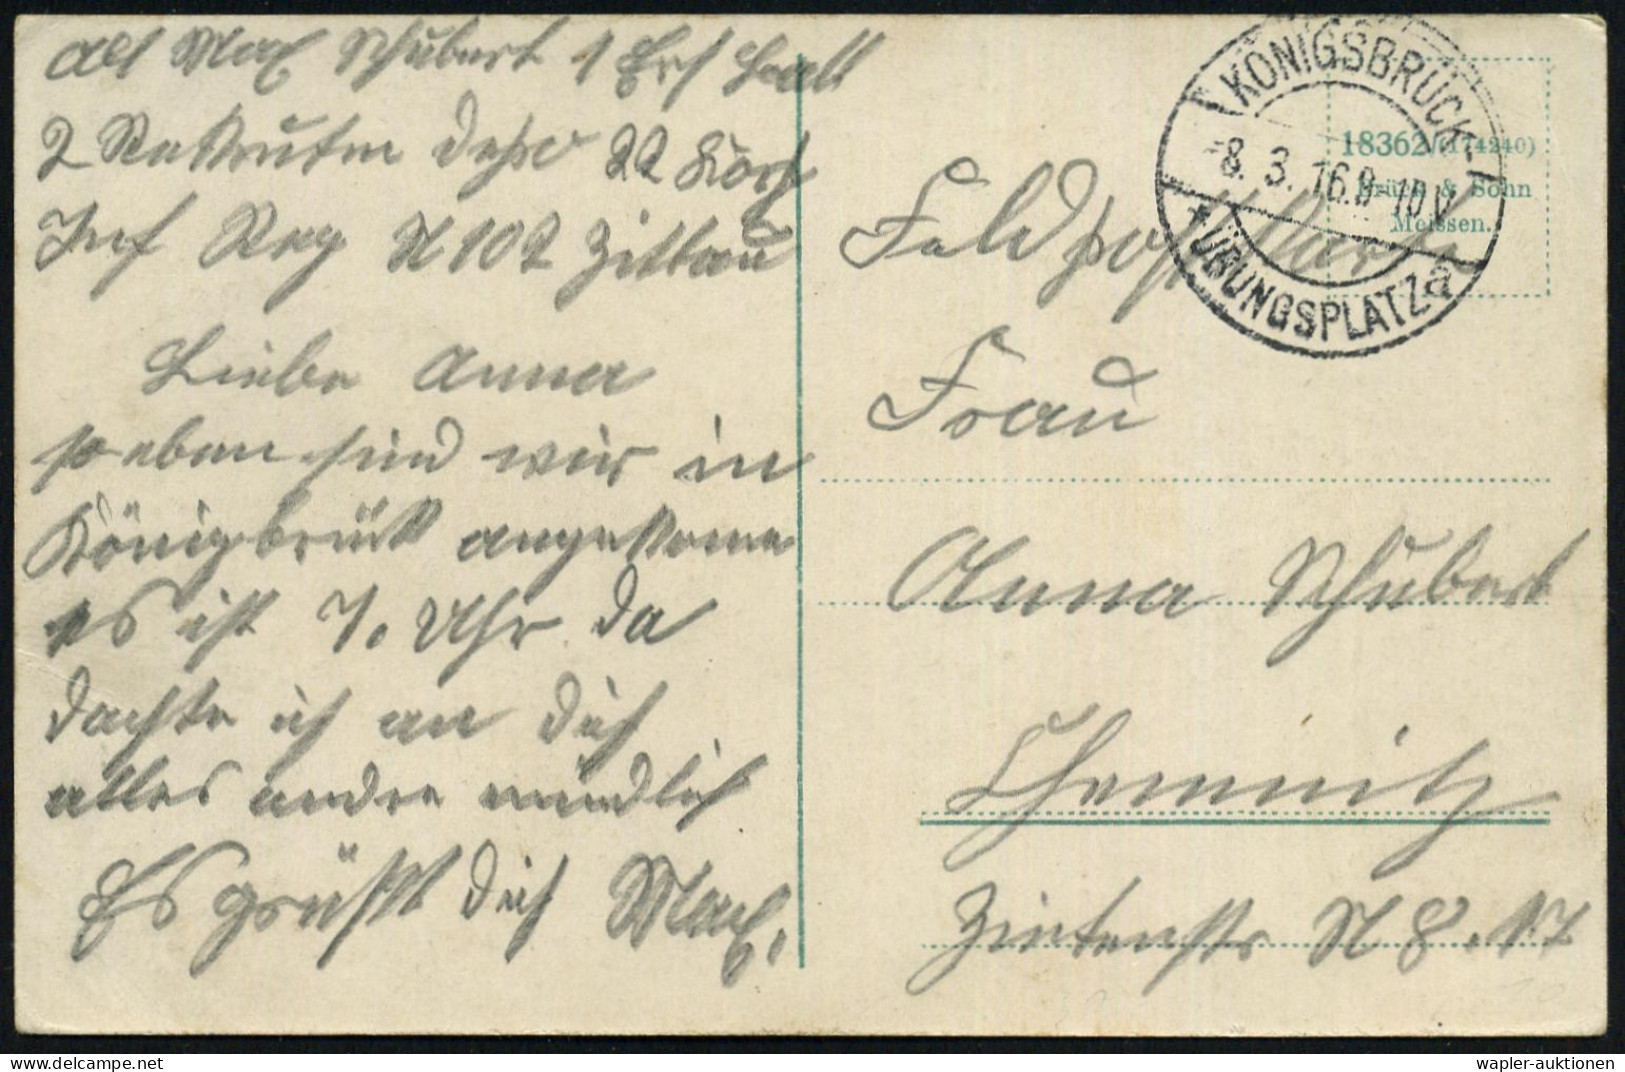 Abs Max Schubert 1 Ers Batl
2 Rekruten Depo 22 Korp
Inf Reg N 102 Zittau
Liebe Anna
so eben sind wir in
Königsbrück angekome
es ist 7. Uhr da
dachte ich an dich
alles andre mündlich
Es grüßt dich Max.
KÖNIGSBRÜCK
-8. 3. 16. 8-10.V.
* ÜBUNGSPLATZ a
18362/(174240)
Brück & Sohn
Meissen.
Feldpostkarte
Frau
Anna Schubert
Chemnitz
Zietenstr N 8.
www.delcampe.net
wapler-auktionen